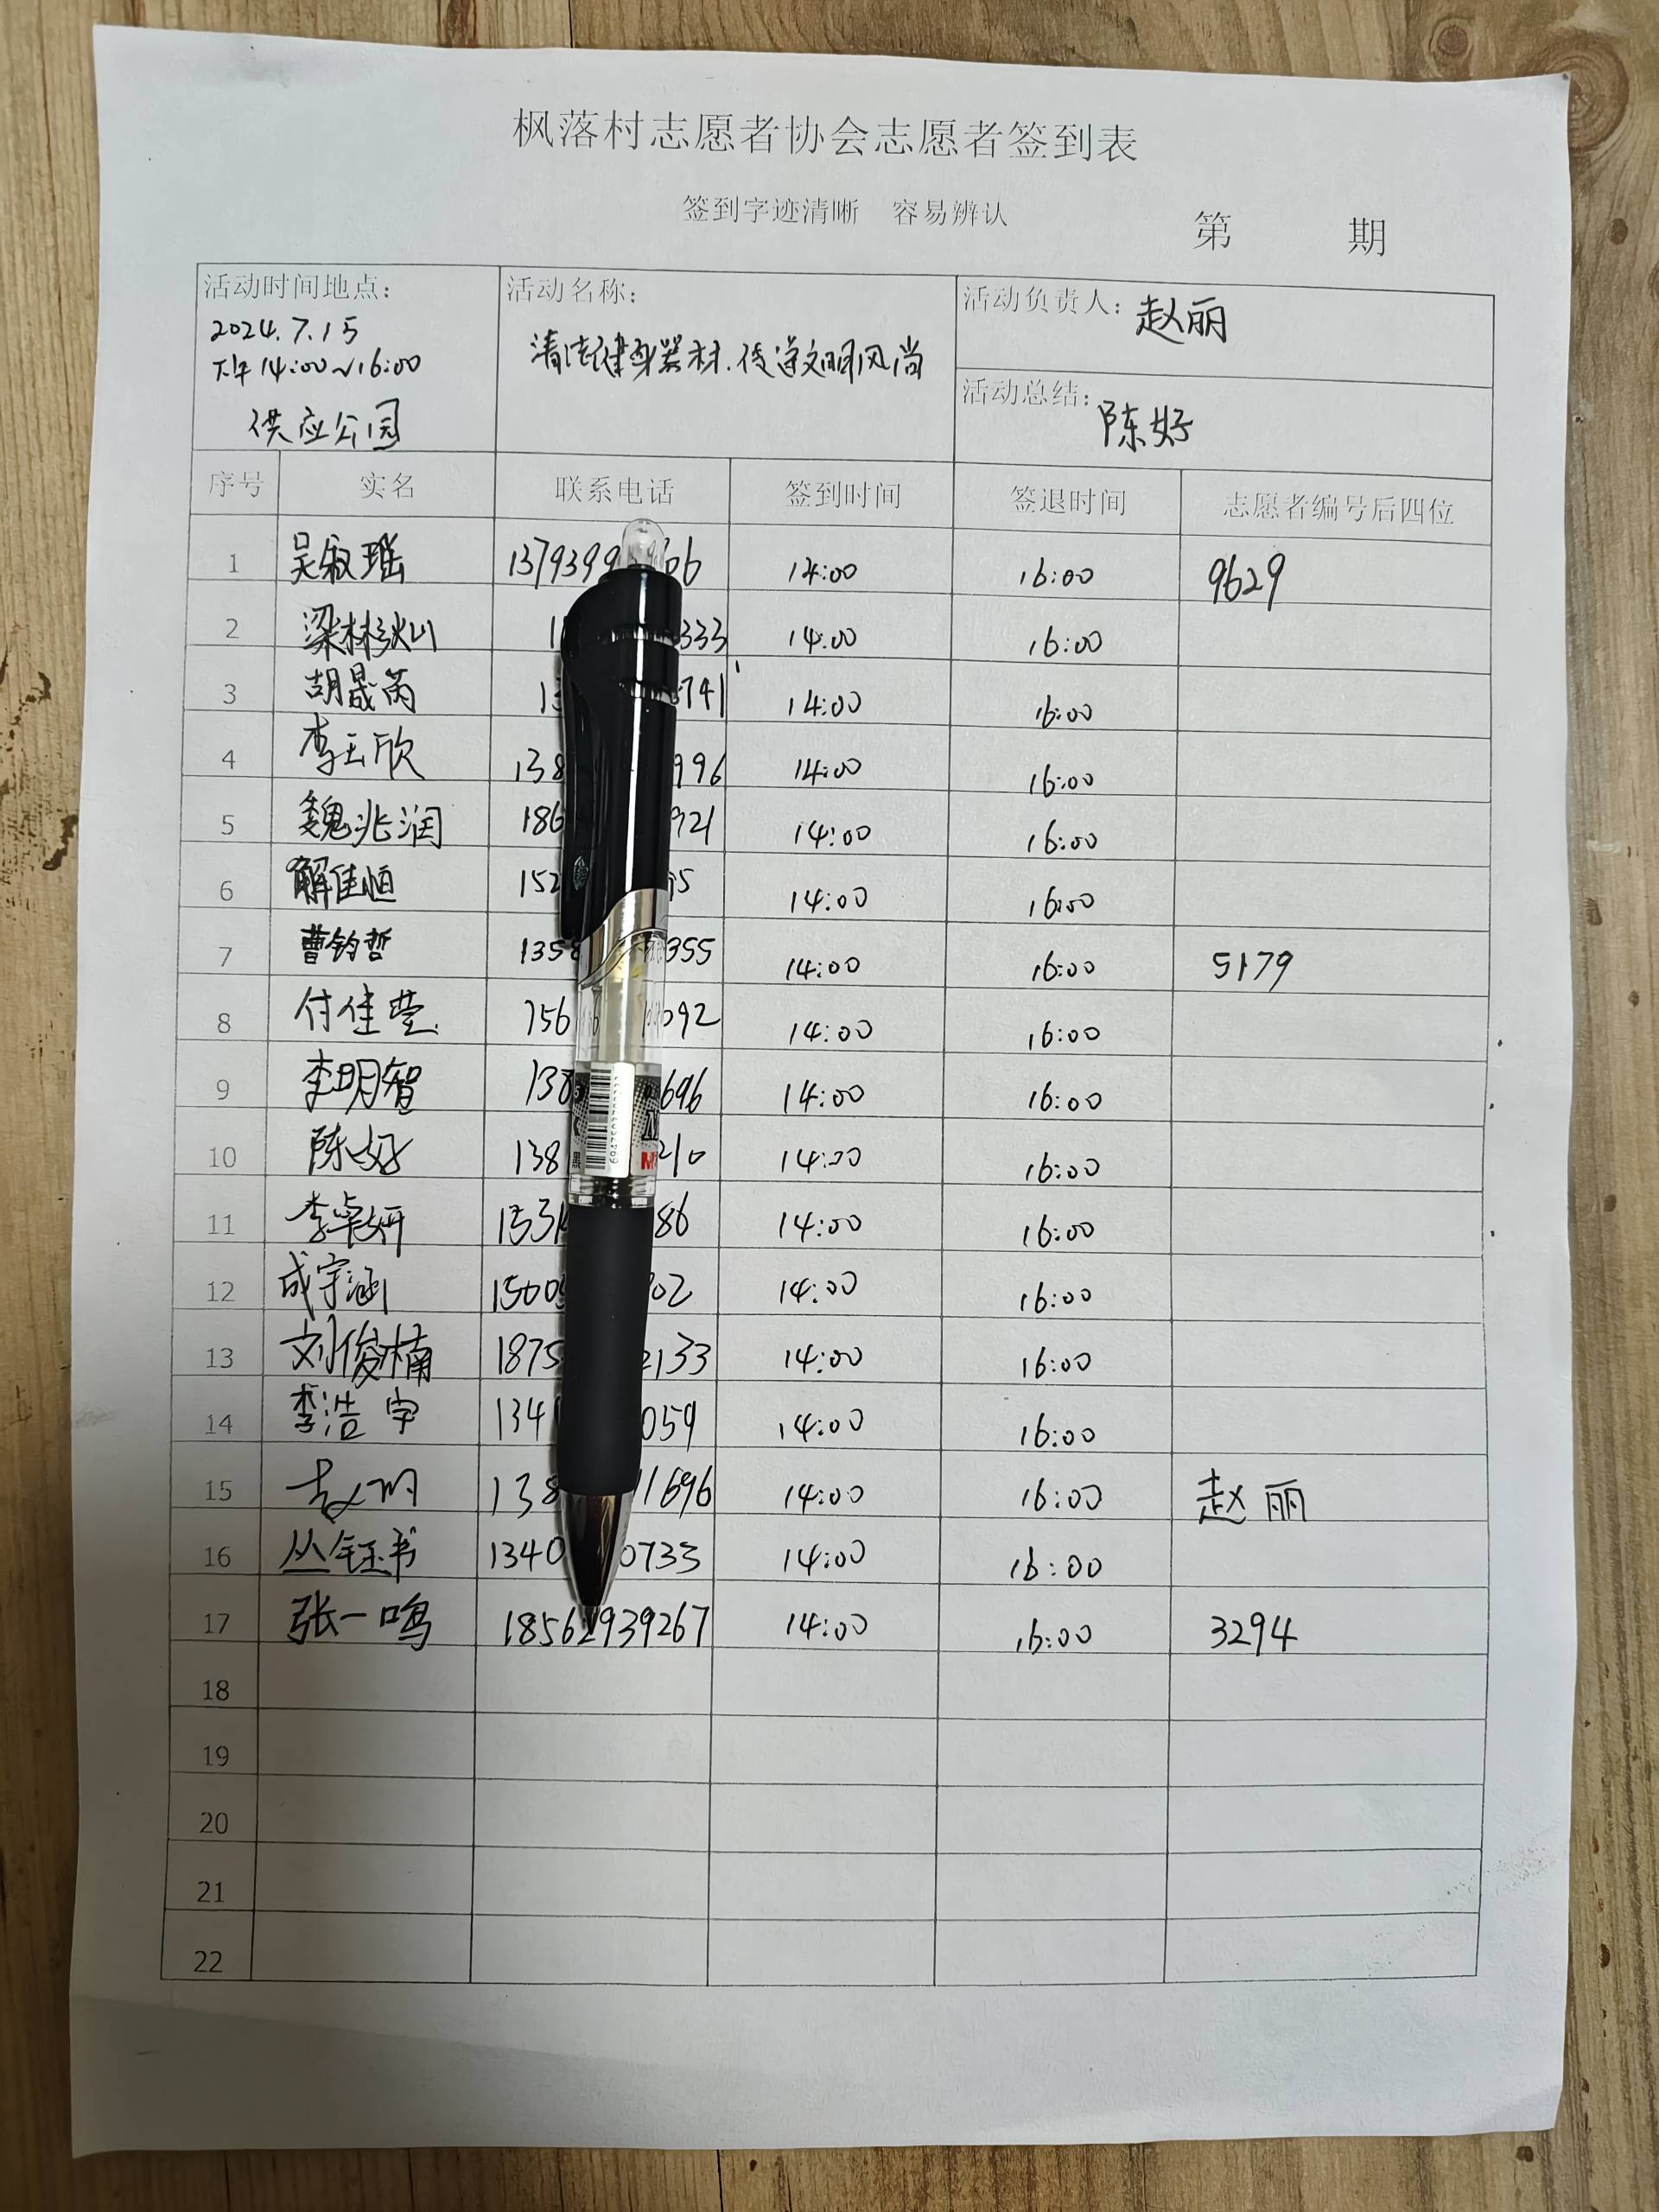 枫落村志愿者协会志愿者签到表
签到字迹清晰 容易辨认
第 期
活动时间地点:
2024.7.15
下午14:00~16:00
供应公园
活动名称:
清洁健身器材.传递文明风尚
活动负责人: 赵丽
活动总结: 陈好
序号 实名 联系电话 签到时间 签退时间 志愿者编号后四位
1 吴叔瑶 1379399 66 14:00 16:00 9629
2 梁林 333 14:00 16:00
3 胡晟芮 13 741 14:00 16:00
4 李玉欣 138 996 14:00 16:00
5 魏兆润 186 921 14:00 16:00
6 解佳恒 152 95 14:00 16:00
7 曹钧哲 1358 355 14:00 16:00 5179
8 付佳莹 156 092 14:00 16:00
9 李明智 138 696 14:00 16:00
10 陈好 138 210 14:00 16:00
11 李卓妍 1531 86 14:00 16:00
12 成宇涵 15605 302 14:00 16:00
13 刘俊楠 1875 2133 14:00 16:00
14 李浩宇 134 059 14:00 16:00
15 赵丽 138 1696 14:00 16:00 赵丽
16 丛钰书 1340 0733 14:00 16:00
17 张一鸣 18562939267 14:00 16:00 3294
18
19
20
21
22